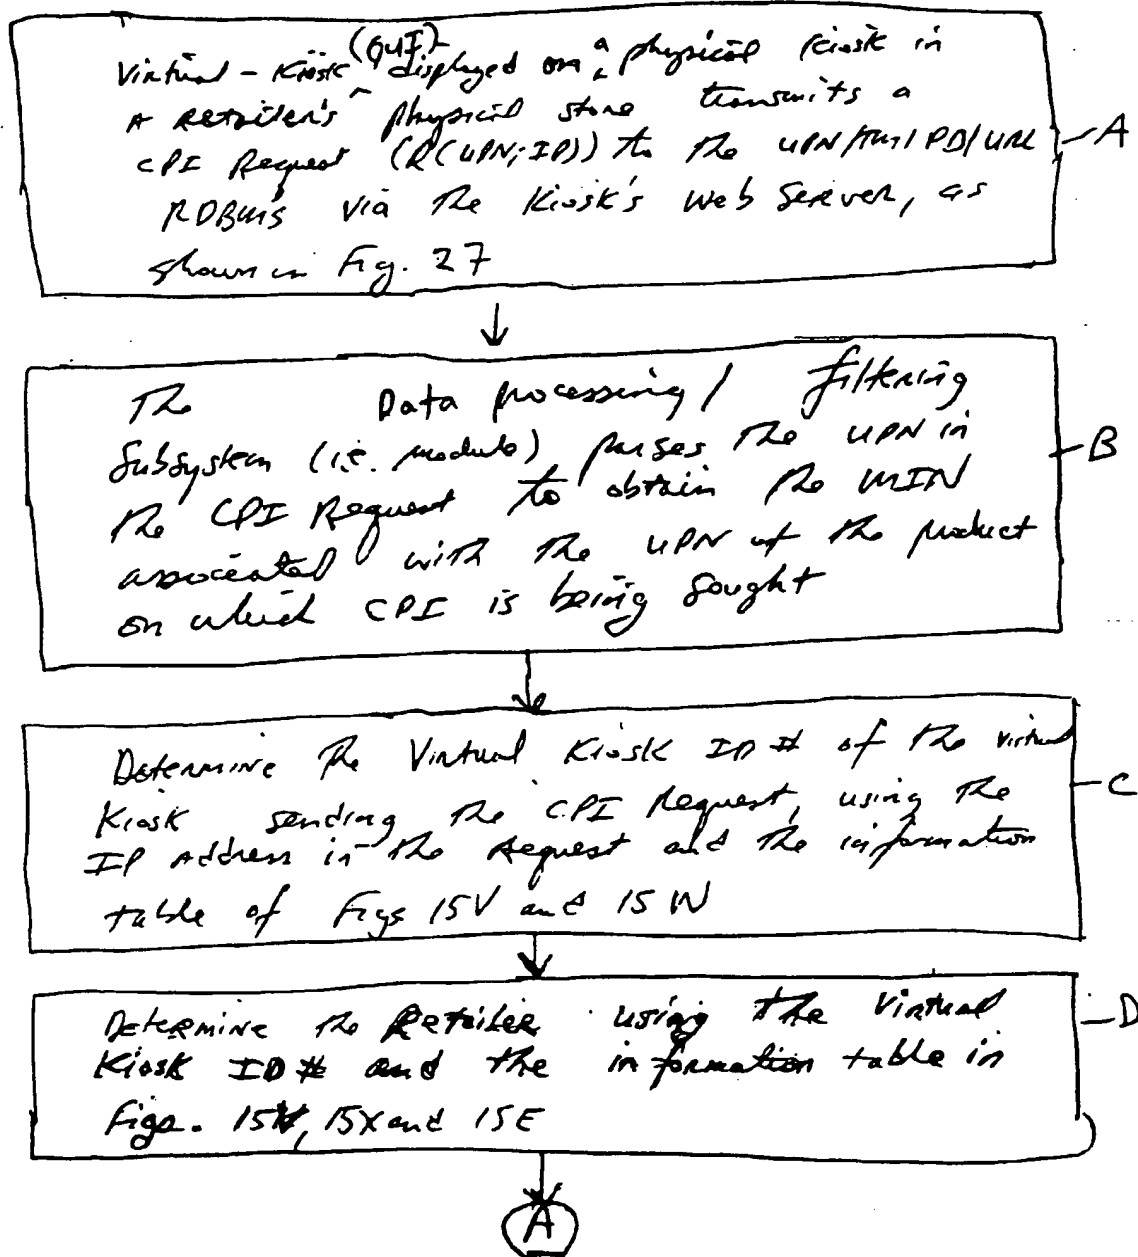 Virtual-Kiosk (GUI) displayed on a physical Kiosk in
A Retailer's physical store transmits a
CPI Request (R(UPN; IP)) to the UPN/TM/PD/URL
RDBMS via the Kiosk's Web Server, as
shown in Fig. 27
A
The Data processing/ filtering
Subsystem (i.e. module) parses the UPN in
the CPI Request to obtain the MIN
associated with the UPN of the product
on which CPI is being sought
B
Determine the Virtual Kiosk ID # of the virtual
Kiosk sending the CPI Request, using the
IP Address in the Request and the information
table of Figs 15V and 15W
C
Determine the Retailer using the Virtual
Kiosk ID # and the information table in
Figs. 15X and 15E
D
A